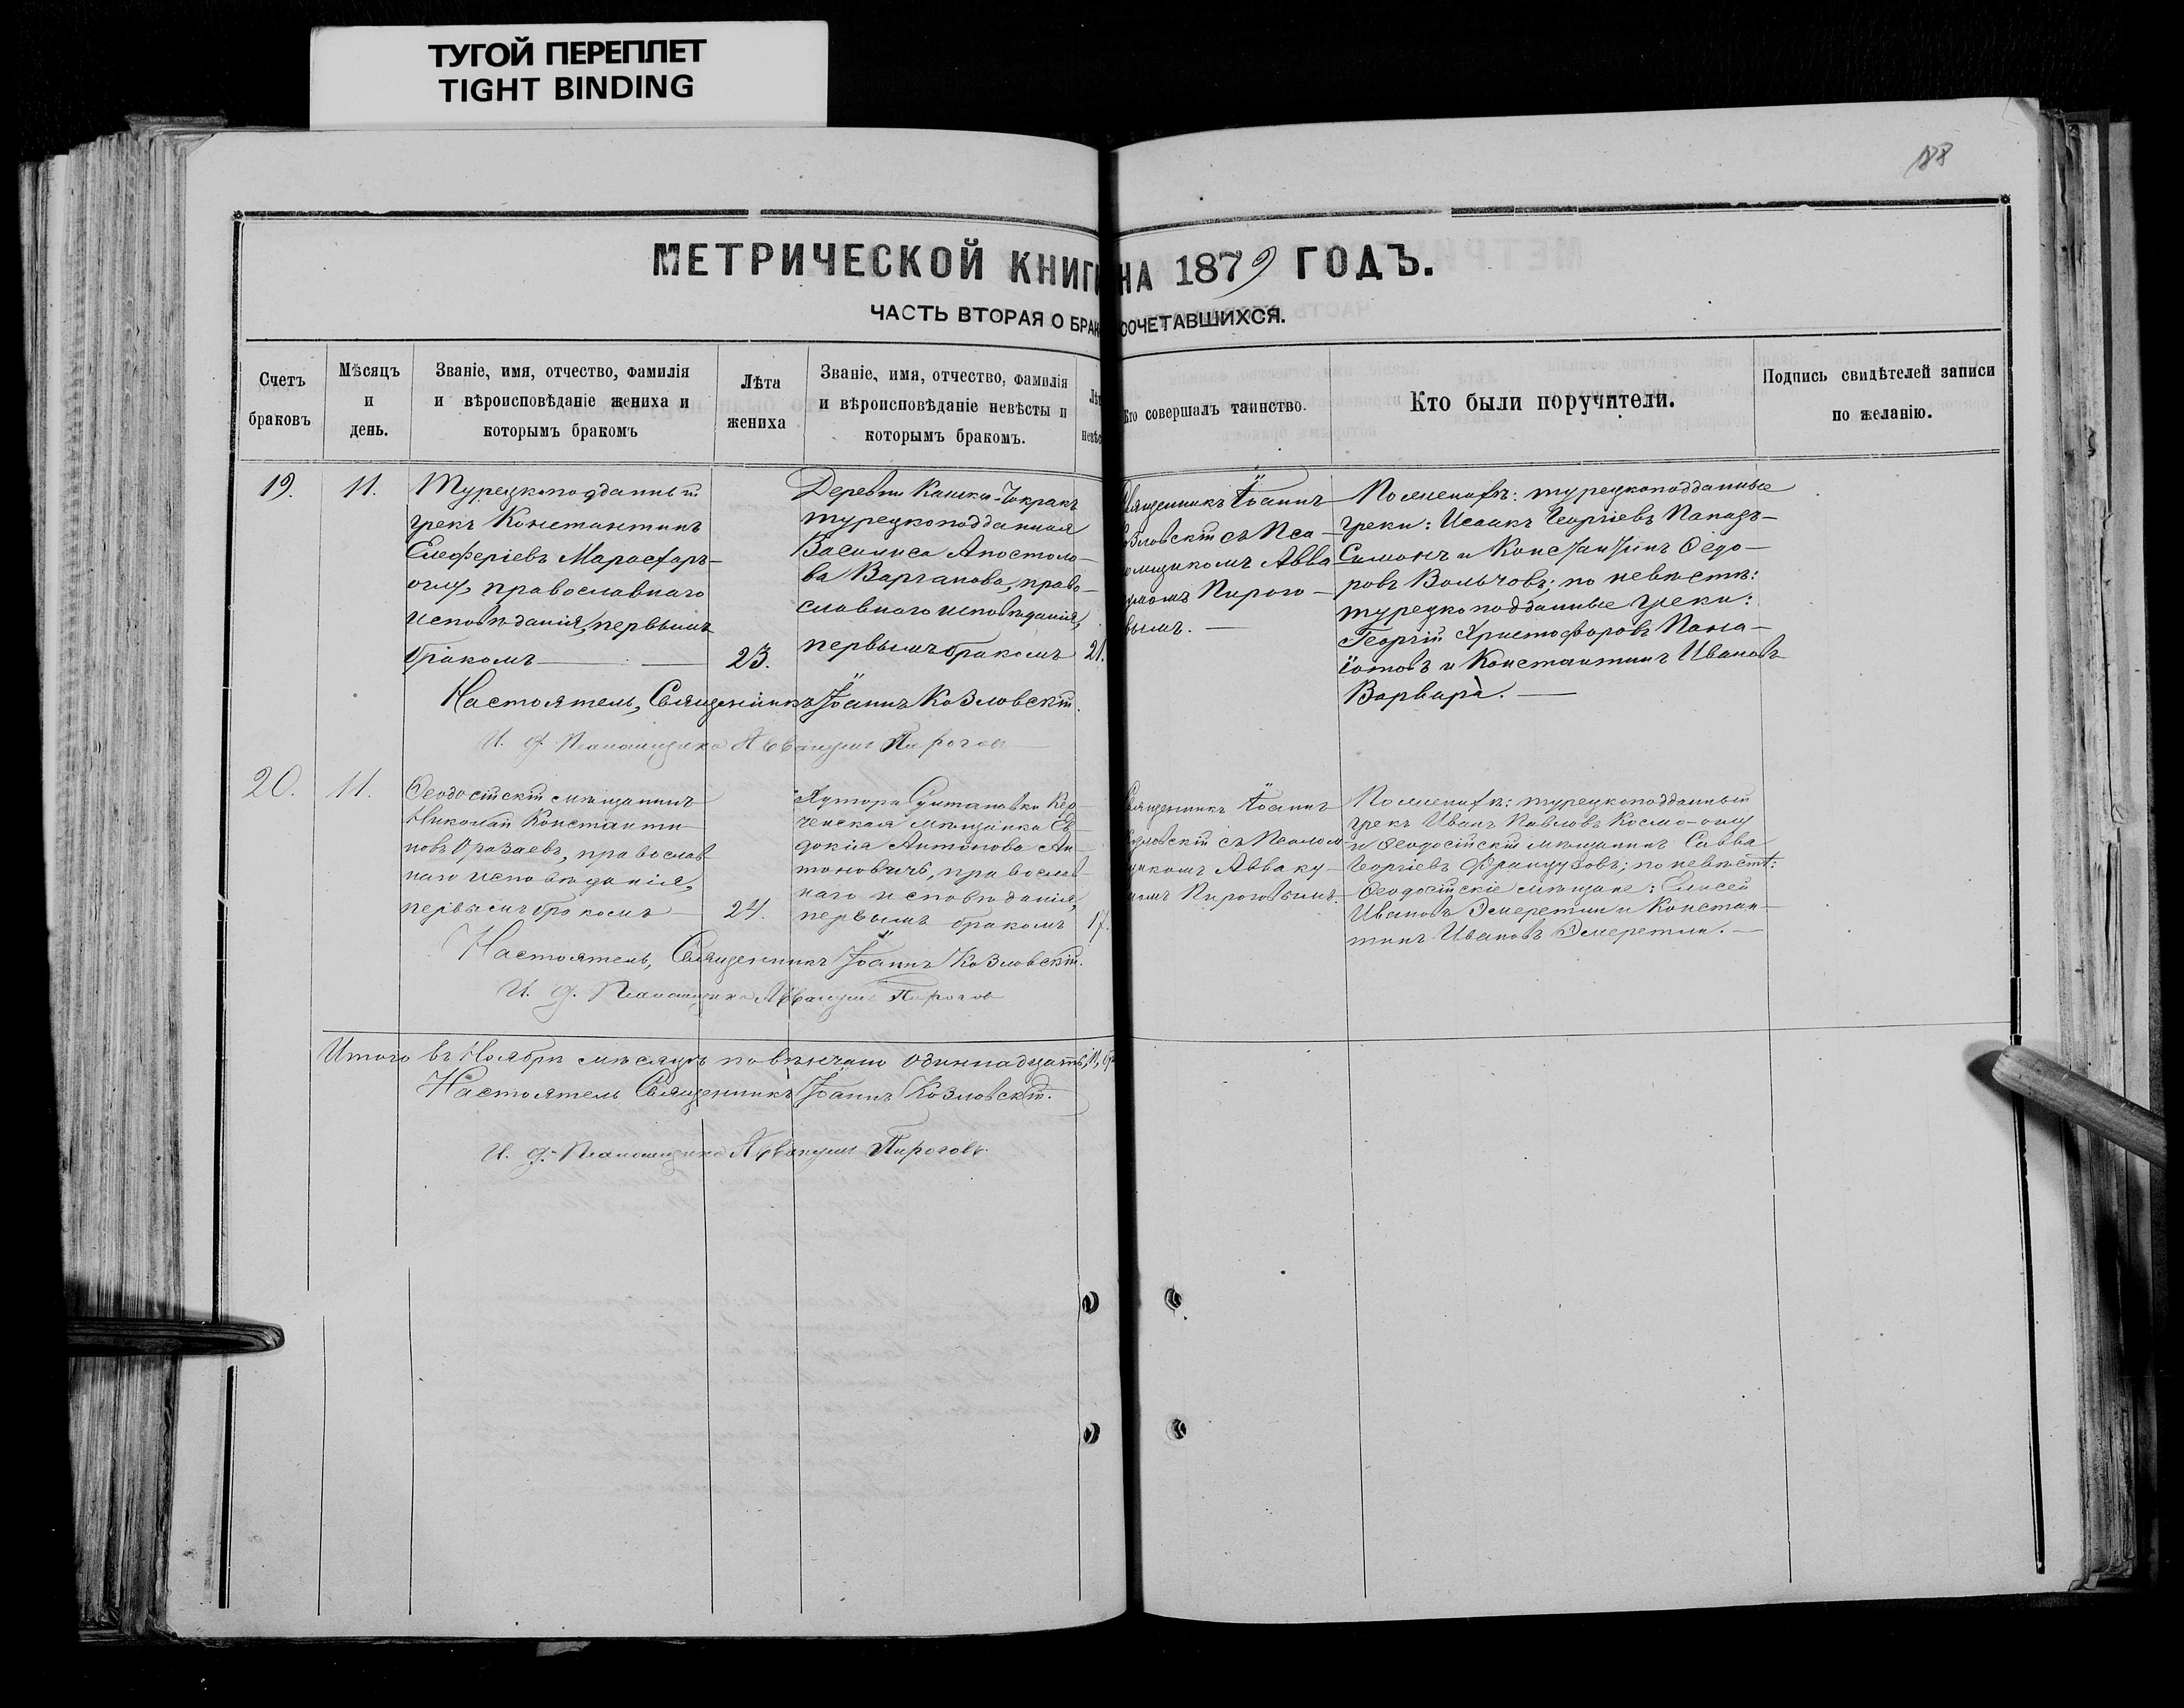 ТУГОЙ ПЕРЕПЛЕТ
TIGHT BINDING
188
МЕТРИЧЕСКОЙ КНИГИ НА 1879 ГОДЪ.
ЧАСТЬ ВТОРАЯ О БРАКОСОЧЕТАВШИХСЯ.
Счетъ
браковъ
Мѣсяцъ
и
день.
Званіе, имя, отчество, фамилія
и вѣроисповѣданіе жениха и
которымъ бракомъ
Лѣта
жениха
Званіе, имя, отчество, фамилія
и вѣроисповѣданіе невѣсты и
которымъ бракомъ.
Кто совершалъ таинство.
Кто были поручители.
Подпись свидѣтелей записи
по желанію.
19.
11.
Турецкоподданный
грекъ Константинъ
Елеферіевъ
оглу, православнаго
исповѣданія, первымъ
бракомъ
23.
Деревни
турецкоподданная
Василиса Апостоло-
ва Варганова, право-
славнаго исповѣданія,
первымъ бракомъ
21.
Священникъ Іоаннъ
Козловскій съ Пса-
ломщикомъ Авва
кумомъ Пирого-
вымъ.
По женихѣ: турецкоподданные
греки: Исаакъ Георгіевъ
Симонъ и Константинъ Ѳедо-
ровъ Вольчовъ; по невѣстѣ:
турецкоподданные греки:
Георгій Христофоровъ Пана-
іотовъ и Константинъ Ивановъ
Варвара.
Настоятель, Священникъ Іоаннъ Козловскій.
И. д. Псаломщика Аввакумъ Пироговъ
20.
11.
Ѳеодосійскій мѣщанинъ
Николай Константи-
новъ Оразаевъ, православ-
наго исповѣданія,
первымъ бракомъ
24.
Хутора Султановки Кер-
ченская мѣщанка Ев-
докія Антонова Ан-
тоновичъ, православ-
наго исповѣданія,
первымъ бракомъ
17.
Священникъ Іоаннъ
Козловскій съ Псалом-
щикомъ Авваку-
момъ Пироговымъ.
По женихѣ: турецкоподданный
грекъ Иванъ Павловъ Космо-оглу
и Ѳеодосійскій мѣщанинъ Савва
Георгіевъ Французовъ; по невѣстѣ:
Ѳеодосійскіе мѣщане: Елисей
Ивановъ Эмеретли и Констан-
тинъ Ивановъ Эмеретли.
Настоятель, Священникъ Іоаннъ Козловскій.
И. д. Псаломщика Аввакумъ Пироговъ
Итого въ Ноябрѣ мѣсяцѣ повѣнчано одиннадцать, 11,
Настоятель Священникъ Іоаннъ Козловскій.
И. д. Псаломщика Аввакумъ Пироговъ.